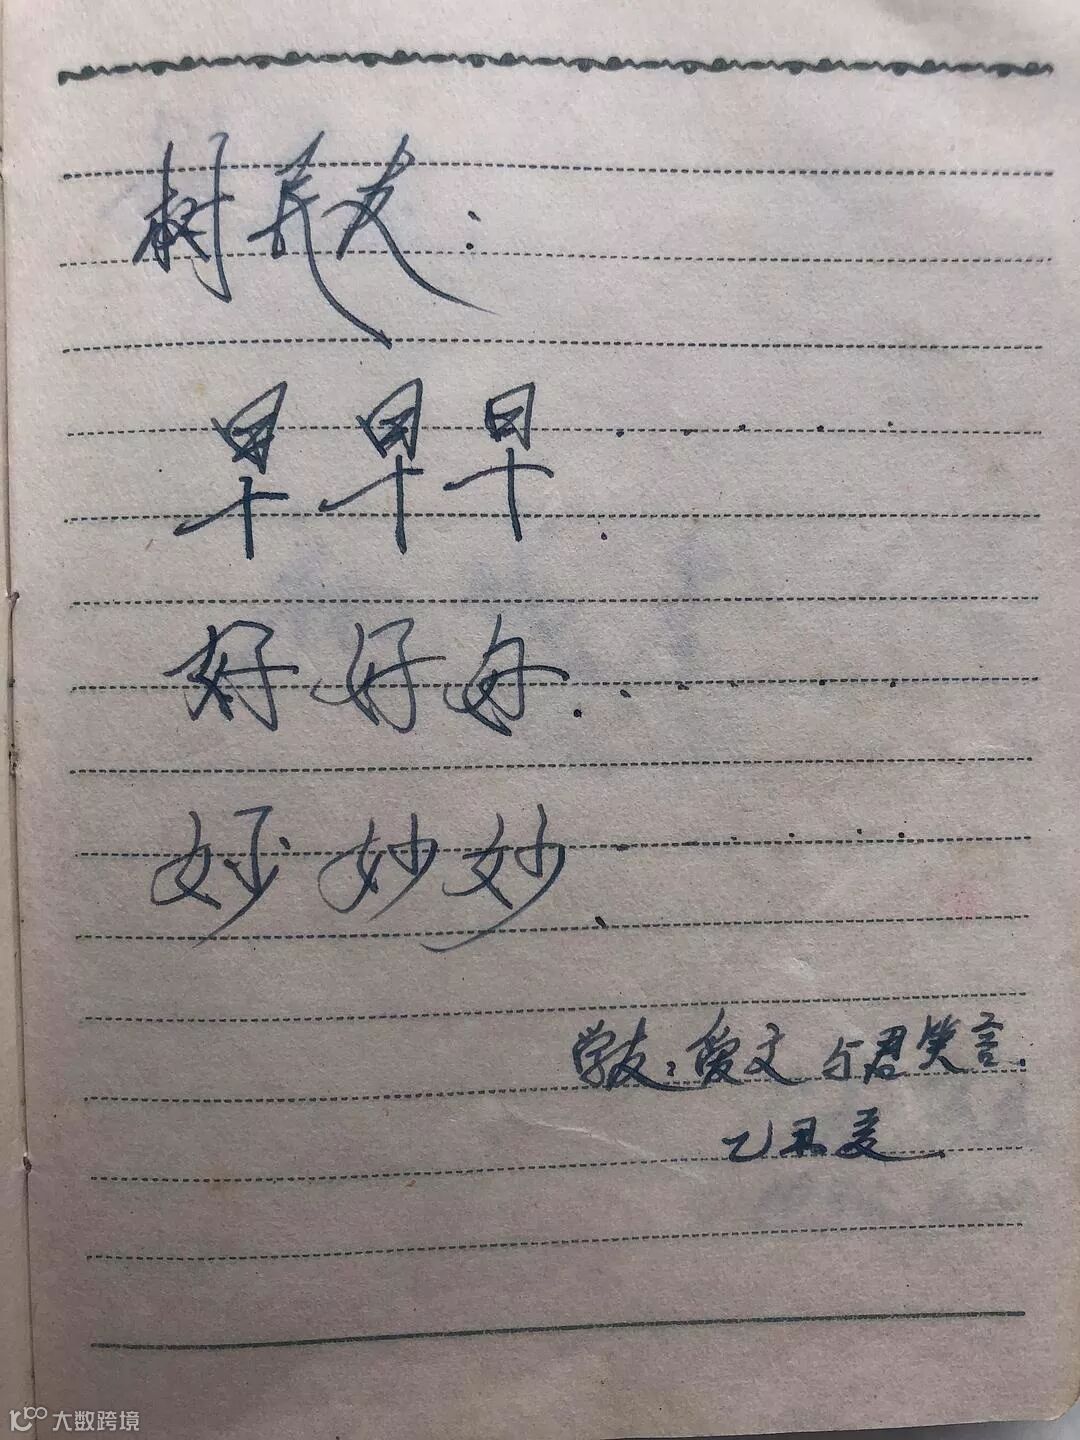 树养友：
早早早......
好好好......
妙妙妙......
学友：爱文与君笑言.
乙丑夏
大数跨境